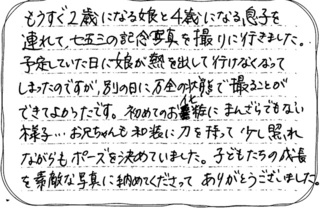 もうすぐ2歳になる娘と4歳になる息子を
連れて、七五三の記念写真を撮りに行きました。
予定していた日に娘が熱を出して行けなくなって
しまったのですが、別の日に万全の状態で撮ることが
できてよかったです。初めてのお化粧にまんざらでもない
様子…お兄ちゃんも和装に刀を持って少し照れ
ながらもポーズを決めていました。子どもたちの成長
を素敵な写真に納めてくださって ありがとうございました。